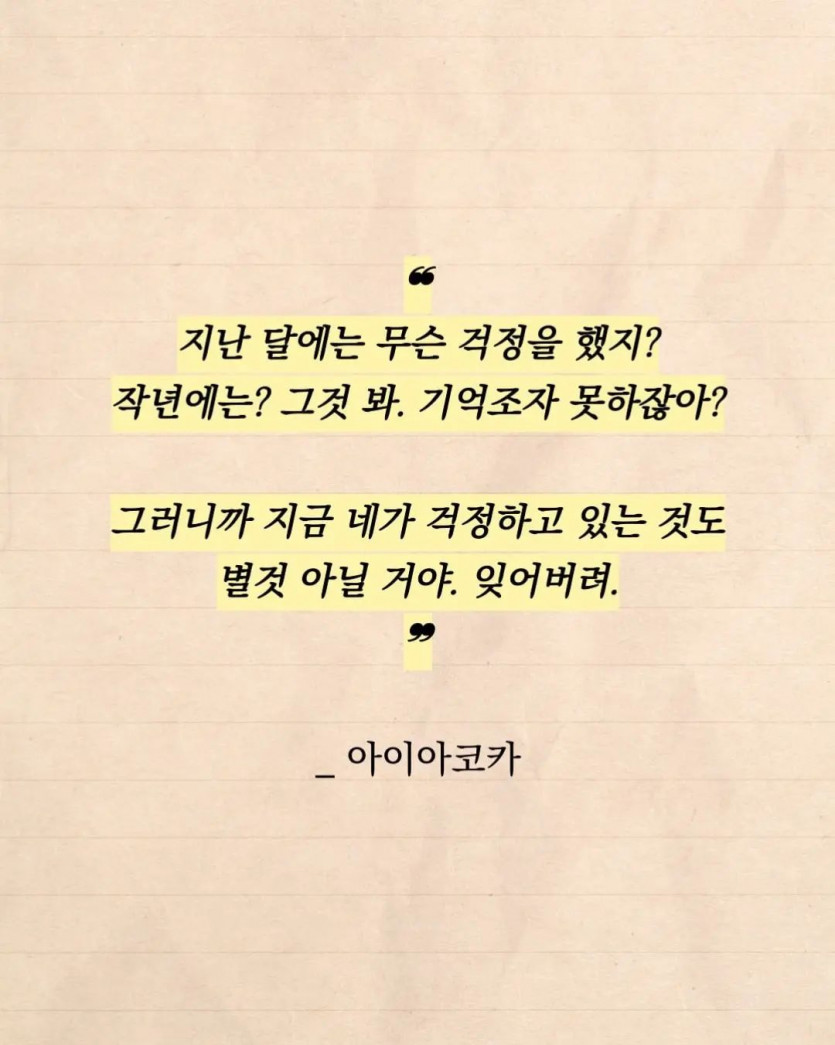 ❝
지난 달에는 무슨 걱정을 했지?
작년에는? 그것 봐. 기억조자 못하잖아?
그러니까 지금 네가 걱정하고 있는 것도
별것 아닐 거야. 잊어버려.
❞
_ 아이아코카